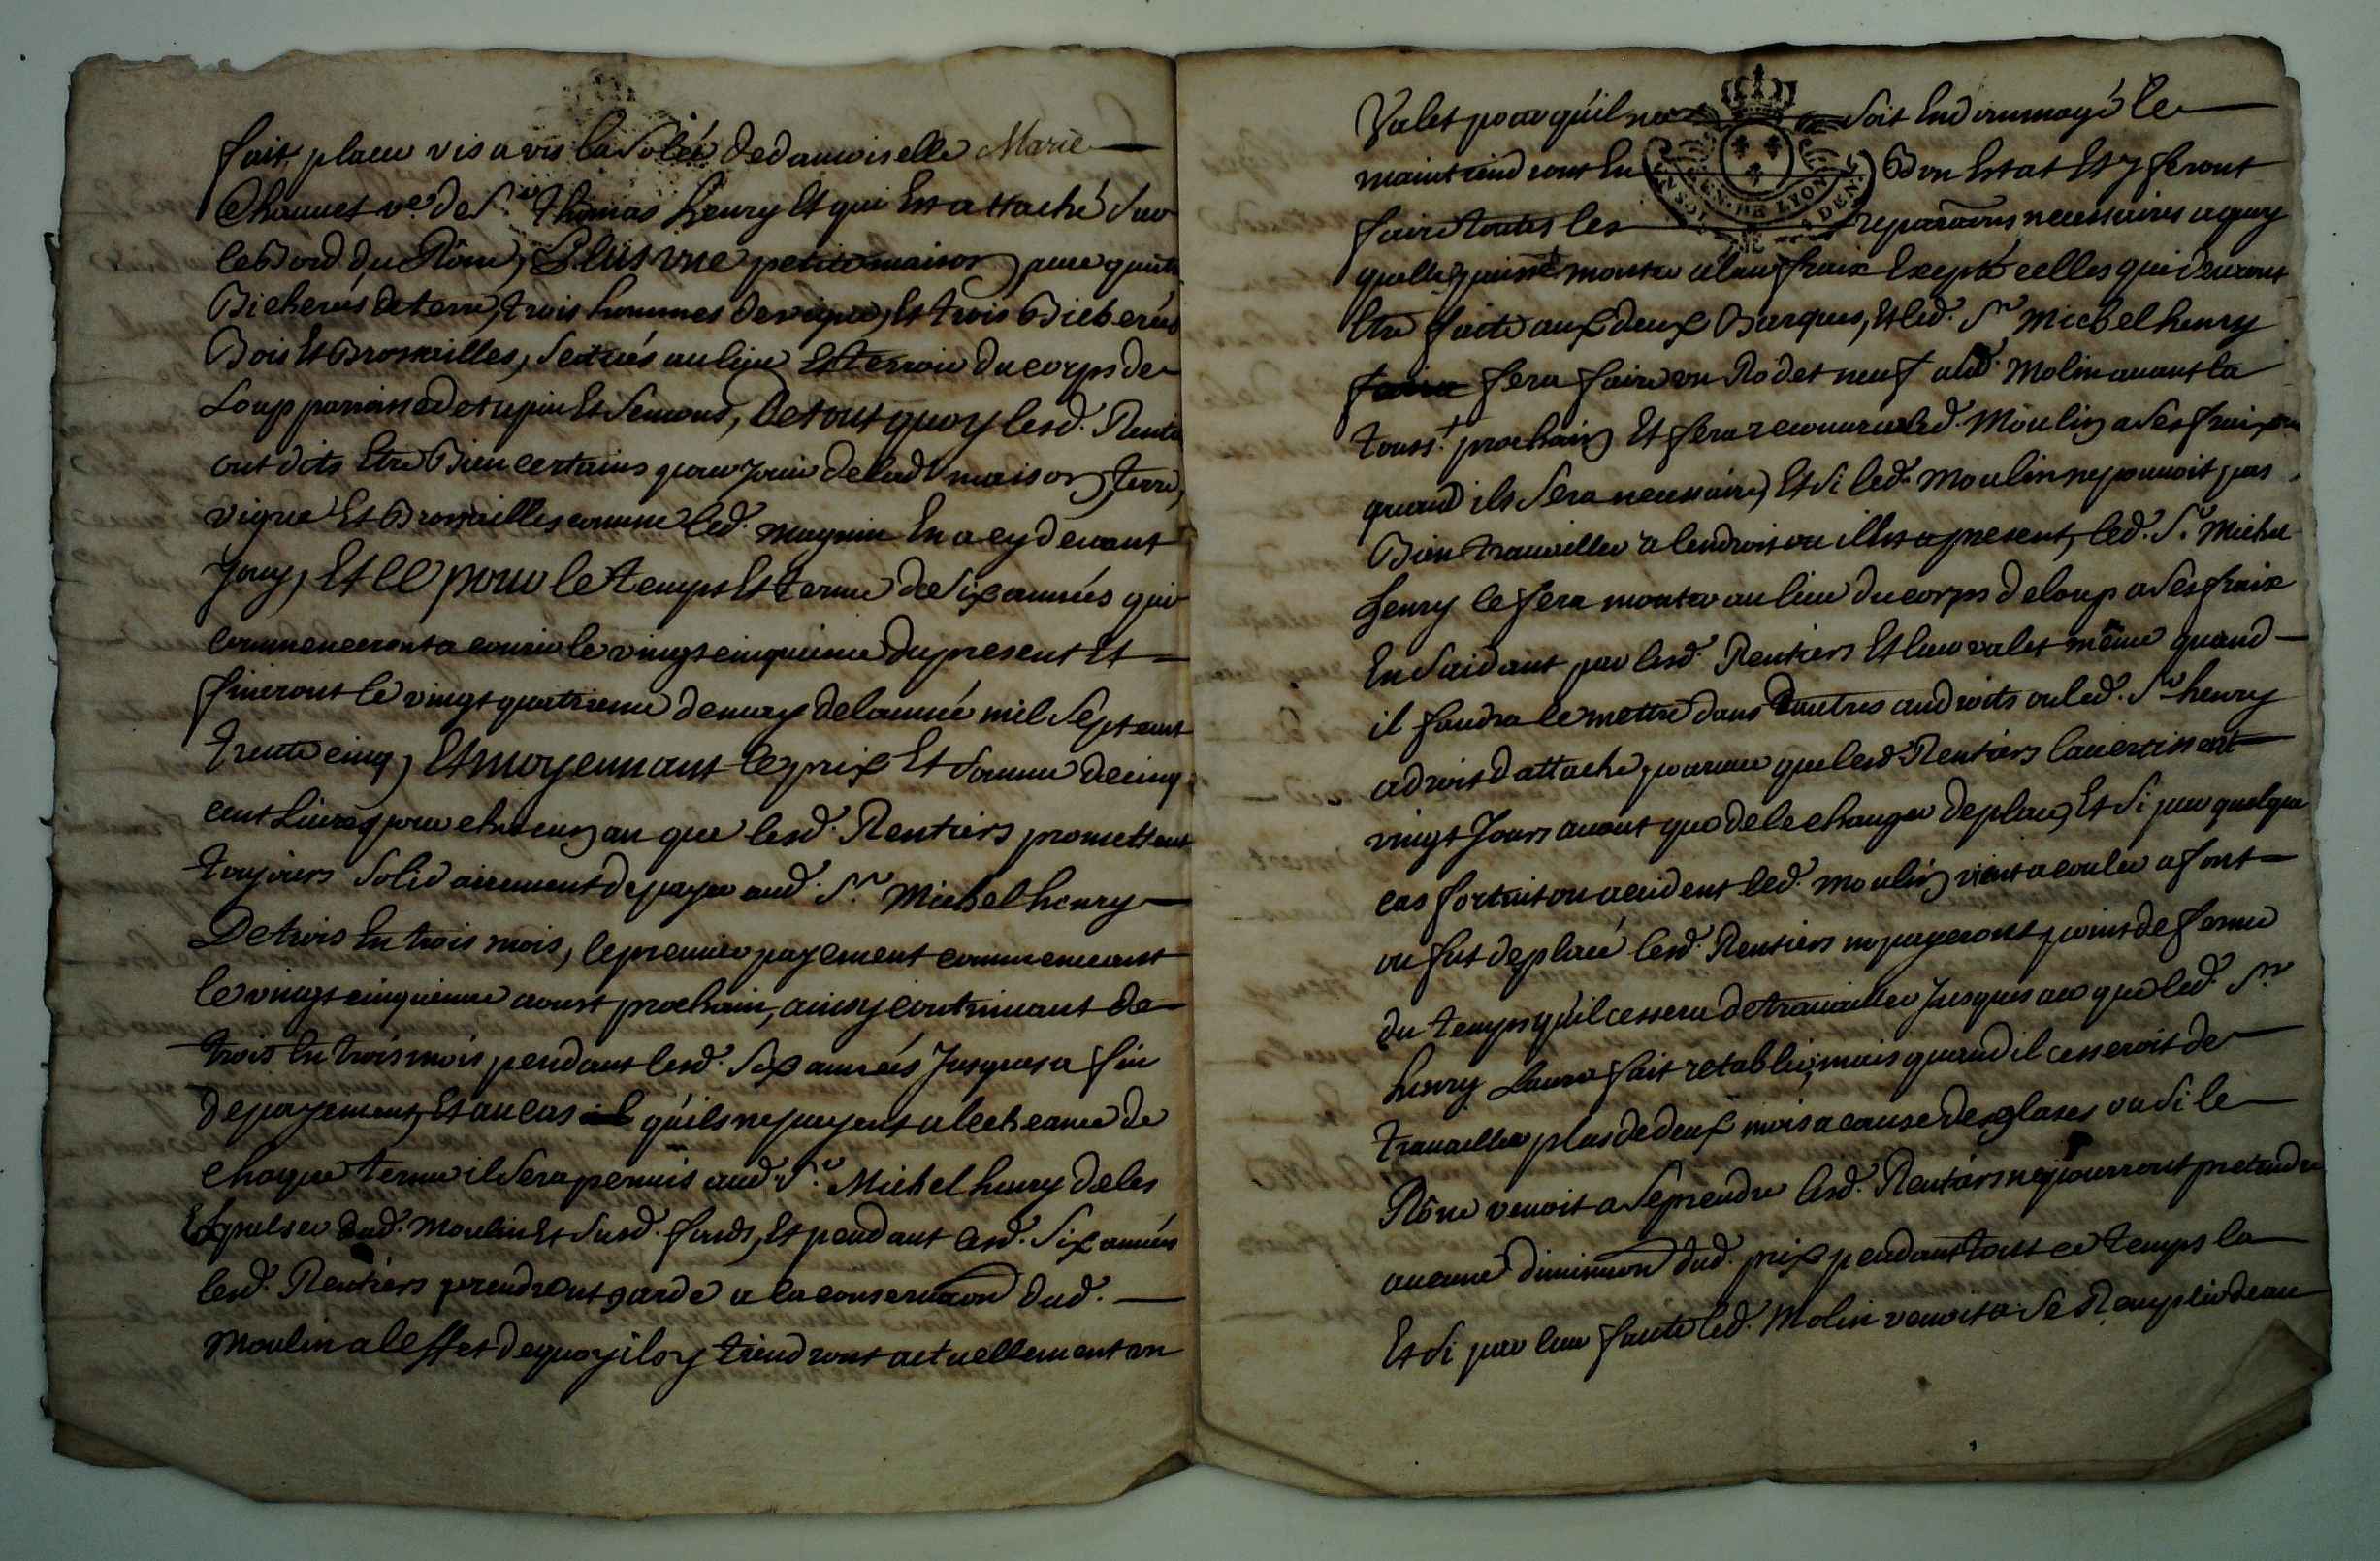 fait, place vis a vis la Solée de damoiselle Marie
Chauuet ve. de Sr. Thomas henry Et qui Est attaché Sur
le Bord du Rône, Plus vne petite maison, pure quatre
Bicherés de terre, trois hommes de vigne, Et trois Bicherés
Bois Et Brossailles, Scitués au lieu Et terroir du corps de
Loup parroisse de tupin Et Semond, De tout quoy lesd. Rentiers
ont dits Etre Bien certains pour jouir de lad. maison, terre,
vigne Et Brossailles comme led. magnin En a cy devant
Jouy, Et Ce pour le temps Et terme de Six années qui
commenceront a courir le vingt cinquieme du present Et
finiront le vingt quatrieme de may de lannée mil Sept cent
trente cinq, Et moyennant le prix Et Somme de cinq
cent Livres pour chacun an que lesd. Rentiers promettent
toujours Solidairement de payer aud. Sr. Michel henry
De trois En trois mois, le premier payement commencant
le vingt cinquieme aoust prochain, ainsy continuant de
trois En trois mois pendant lesd. Six années Jusques a fin
de payement, Et au cas quils ne payent a lecheance de
chaque terme il Sera permis aud. Sr. Michel henry de les
Expulser dud. Moulin Et Susd. fonds, Et pendant lesd. Six années
lesd. Rentiers prendront garde a la conservaon dud.
Moulin a leffet de quoy ils y tiendront actuellement vn
Valet pour quil ne Soit Endommagé le
maintiendront En Bon Estat Et y feront
GEN. DE LYON
faire toutes les reparaons necessaires a quoy
quelles puisse monter a leur fraix Exepté celles qui Seront
Etre faite aux deux Barques, Et led. Sr Michel henry
fera faire vn Rodet neuf aud. Molin auant la
touss.t prochain Et fera recouurir led. Moulin a Ses fraix
quand ils Sera necessaire, Et Si led. Moulin ne pouuoit pas
Bien trauailler a lendroit ou il Est a present, led. Sr. Michel
henry le fera monter au lieu du corps de loup a Ses fraix
En Saidant par lesd. Rentiers Et leur valet même quand
il faudra le mettre dans Dautres androits ou led. Sr henry
a droit dattache pourueu que lesd. Rentiers lauertissent
vingt Jours auant que de le changer de place, Et Si par quelque
cas fortuit ou accident led. moulin vient a couler a font
ou fut deplacé lesd. Rentiers ne payeront point de ferme
du temps quil cessera de trauailler Jusques ace que led. Sr
henry Laura fait retablir, mais quand il cesseroit de
trauailler plus de deux mois a cause des glaces ou Si le
Rône venoit a Seprendre lesd. Rentiers ne pourront pretendre
aucune diminuon dud. prix pendant tout ce temps la
Et Si par leur faute led. Molin venoit a Se Remplir deau